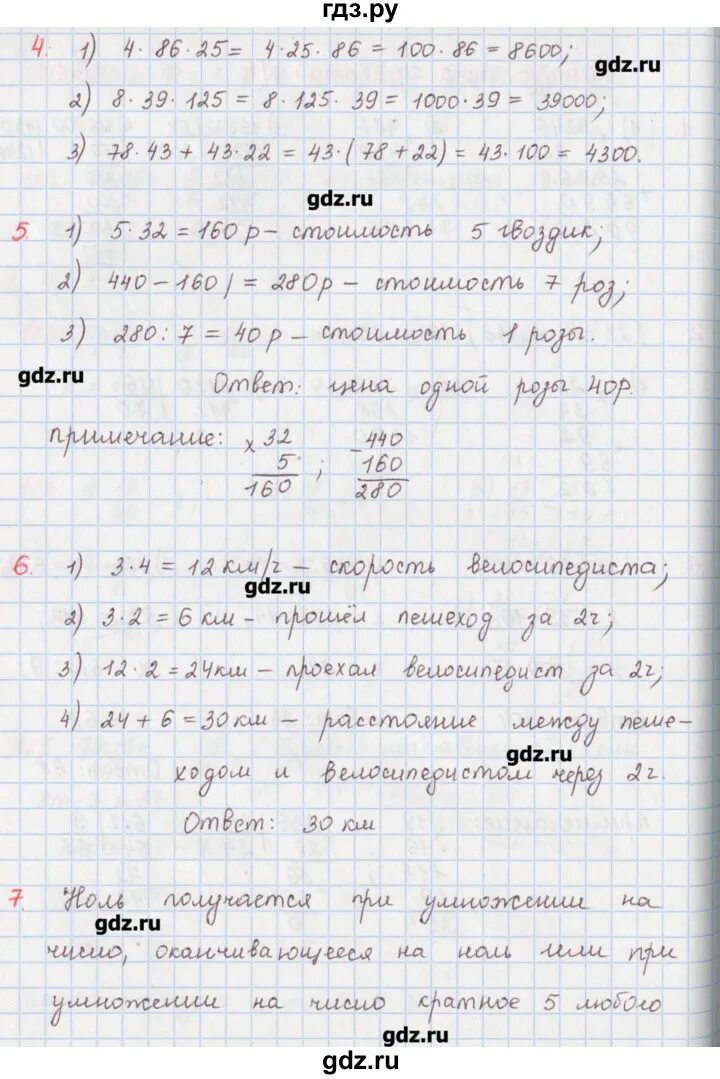 гдз.ру
4. 1) 4 · 86 · 25 = 4 · 25 · 86 = 100 · 86 = 8600;
gdz.ru
2) 8 · 39 · 125 = 8 · 125 · 39 = 1000 · 39 = 39000;
3) 78 · 43 + 43 · 22 = 43 · (78 + 22) = 43 · 100 = 4300.
gdz.ru
5. 1) 5 · 32 = 160 р – стоимость 5 гвоздик;
2) 440 – 160 = 280р – стоимость 7 роз;
3) 280 : 7 = 40 р – стоимость 1 розы.
gdz.ru
Ответ: цена одной розы 40р.
примечание: x 32 – 440
5 ; 160
160 280
6. 1) 3 · 4 = 12 км/ч – скорость велосипедиста;
gdz.ru
2) 3 · 2 = 6 км – прошёл пешеход за 2ч;
3) 12 · 2 = 24км – проехал велосипедист за 2ч;
4) 24 + 6 = 30 км – расстояние между пеше-
gdz.ru
ходом и велосипедистом через 2ч.
Ответ: 30 км
7. Ноль получается при умножении на
gdz.ru
число, оканчивающееся на ноль или при
умножении на число кратное 5 любого
gdz.ru
gdz.ru